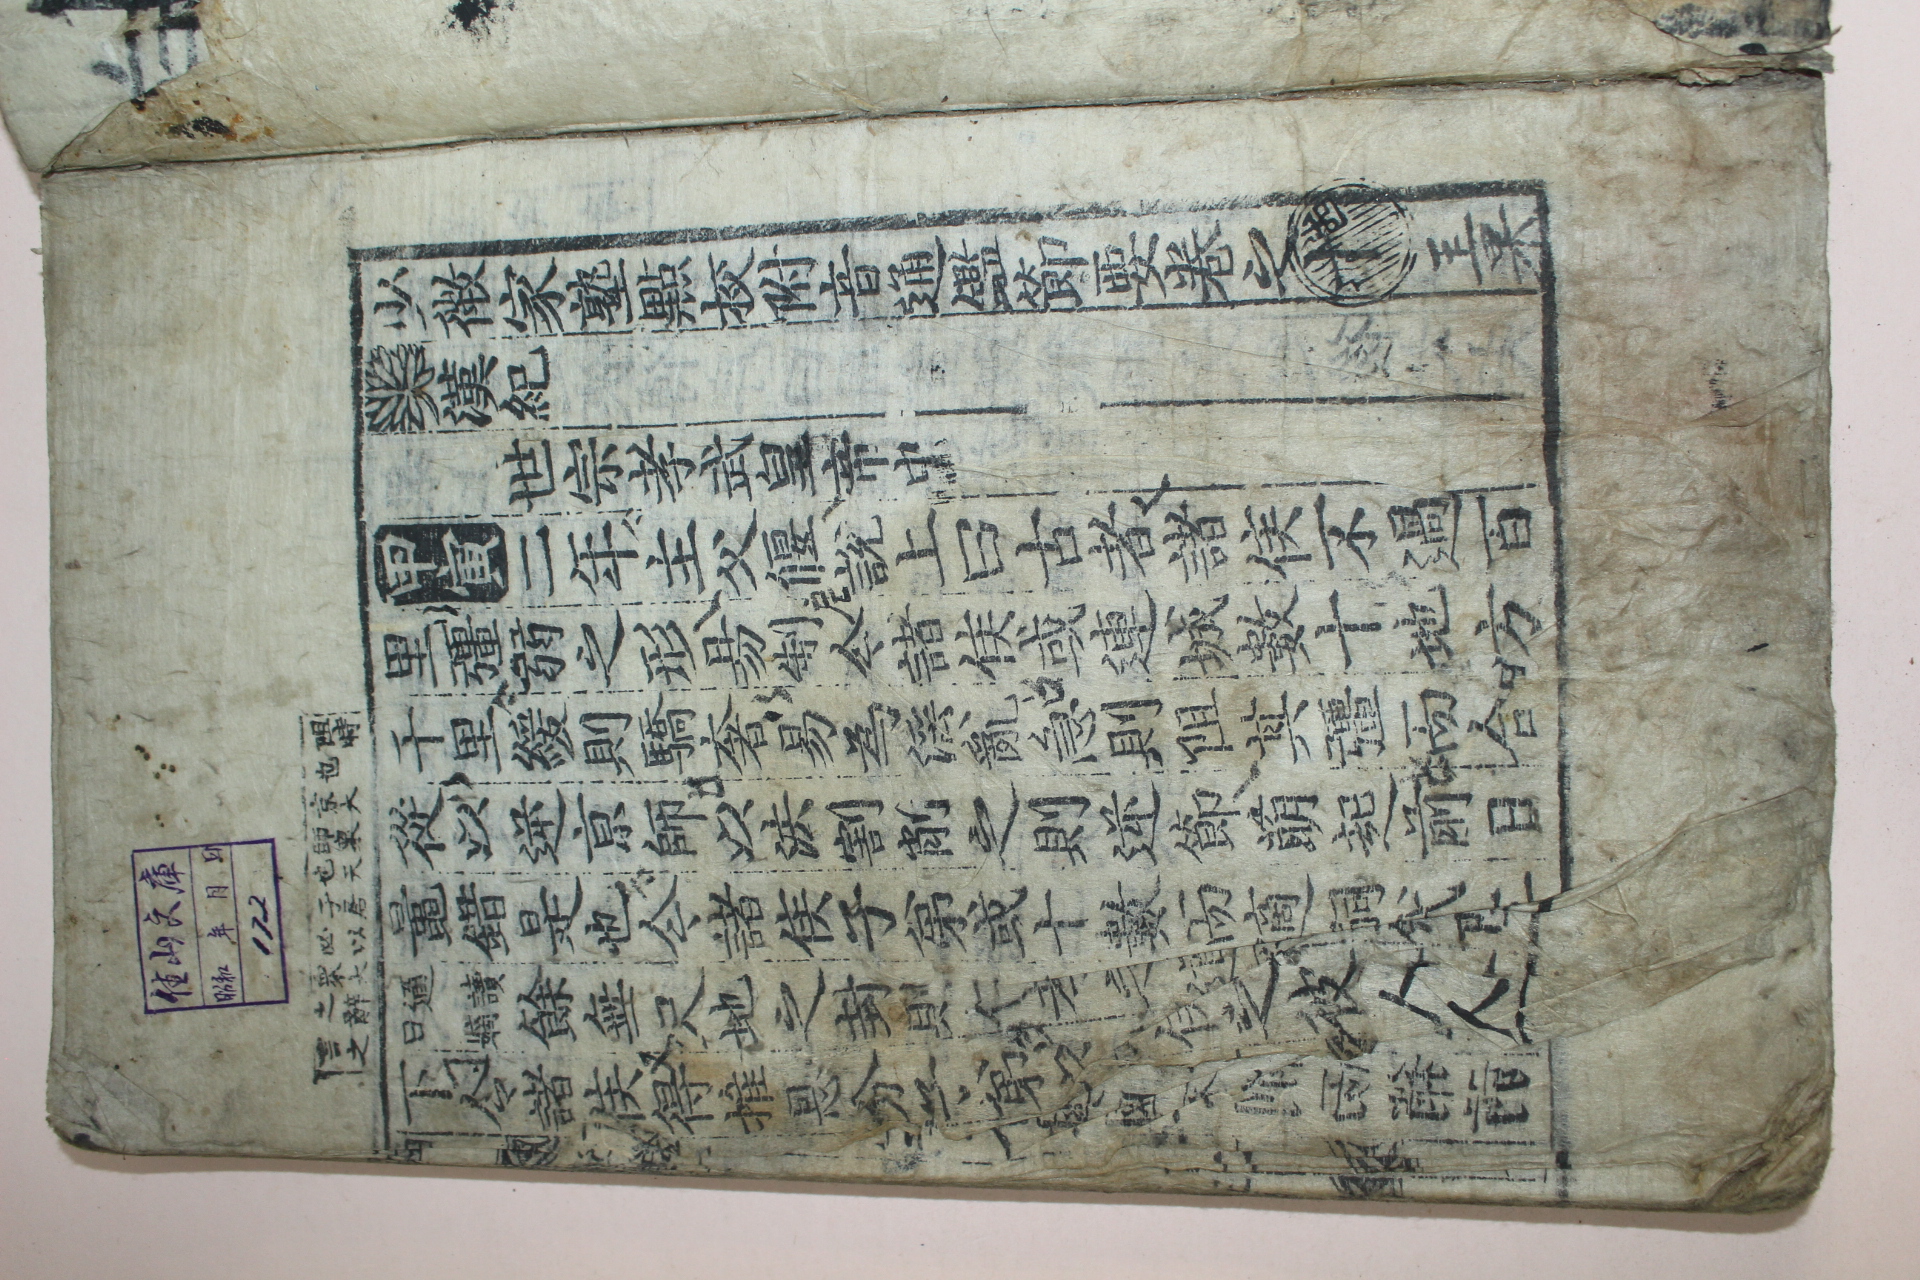 佳山文庫
昭和 年 月 日
172
阻時
也
京大
師衆
也天
子居
必以
衆大
之辭
言之
少微家塾點校附音通鑑節要卷之十 王果
漢紀
世宗孝武皇帝中
甲寅二年主父偃說上曰古者諸侯不過百
里彊弱之形易制今諸侯或連城數十地方
千里緩則驕奢易為淫亂急則阻其彊而合
從以逆京師以法割削之則逆節萌起前日
鼂錯是也今諸侯子弟或十數而適嗣代立
適讀曰嫡餘無尺地之封則仁孝之 彼人人
下令諸侯得推恩分子弟以